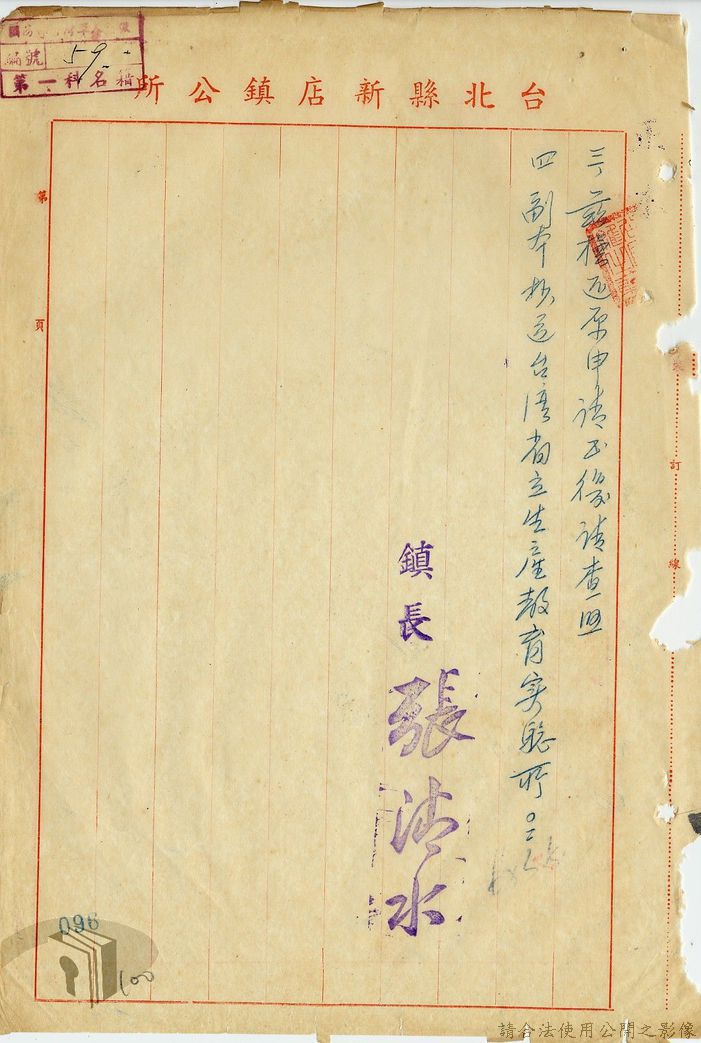 台北縣新店鎮公所
編號 59
第一科名稱
三、茲檢還原申請书後請查照
四 副本抄送台湾省立生產教育实驗所。
鎮長 張清水
第 頁
訂
線
096
100
請合法使用公開之影像